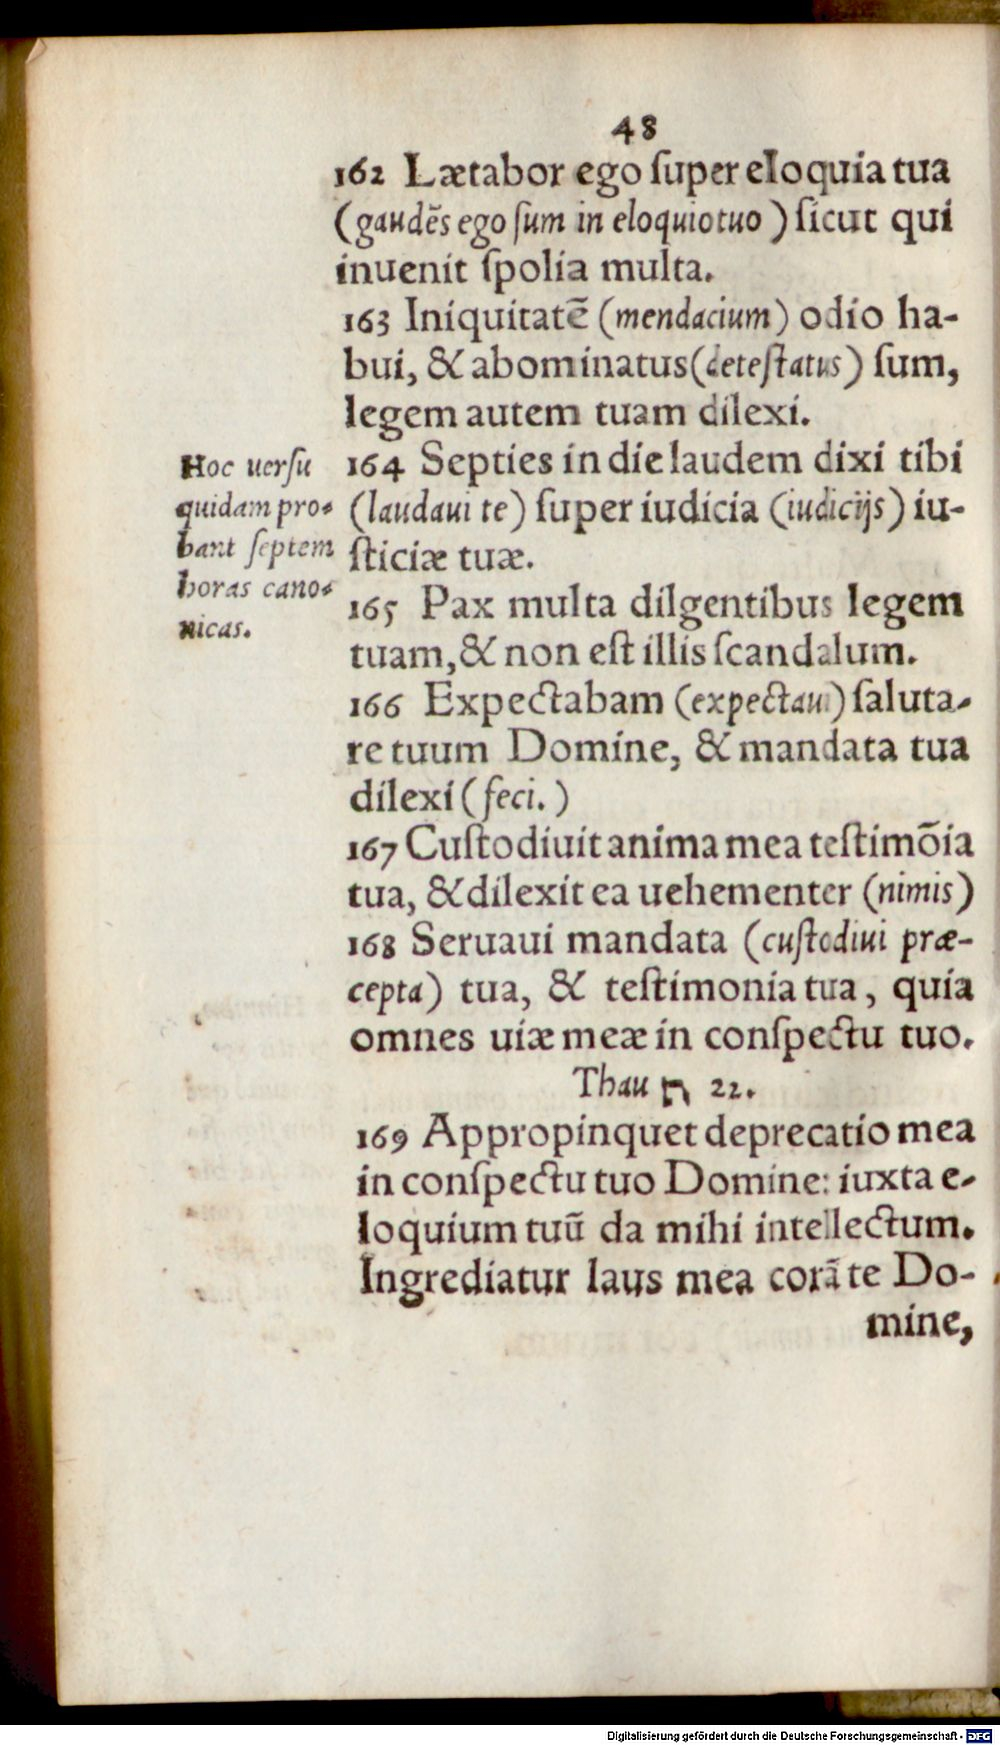 48
162 Lætabor ego ſuper eloquia tua
(gaudēs ego ſum in eloquio tuo) ſicut qui
inuenit ſpolia multa.
163 Iniquitatē (mendacium) odio ha-
bui, & abominatus (deteſtatus) ſum,
legem autem tuam dilexi.
164 Septies in die laudem dixi tibi
(laudaui te) ſuper iudicia (iudicijs) iu-
ſticiæ tuæ.
Hoc uerſu
quidam pro-
bant ſeptem
horas cano-
nicas.
165 Pax multa dilgentibus legem
tuam, & non eſt illis ſcandalum.
166 Expectabam (expectaui) ſaluta-
re tuum Domine, & mandata tua
dilexi (feci.)
167 Cuſtodiuit anima mea teſtimōia
tua, & dilexit ea uehementer (nimis)
168 Seruaui mandata (cuſtodiui præ-
cepta) tua, & teſtimonia tua, quia
omnes uiæ meæ in conſpectu tuo.
Thau ת 22.
169 Appropinquet deprecatio mea
in conſpectu tuo Domine: iuxta e-
loquium tuū da mihi intellectum.
Ingrediatur laus mea corā te Do-
mine,
Digitalisierung gefördert durch die Deutsche Forschungsgemeinschaft - DFG